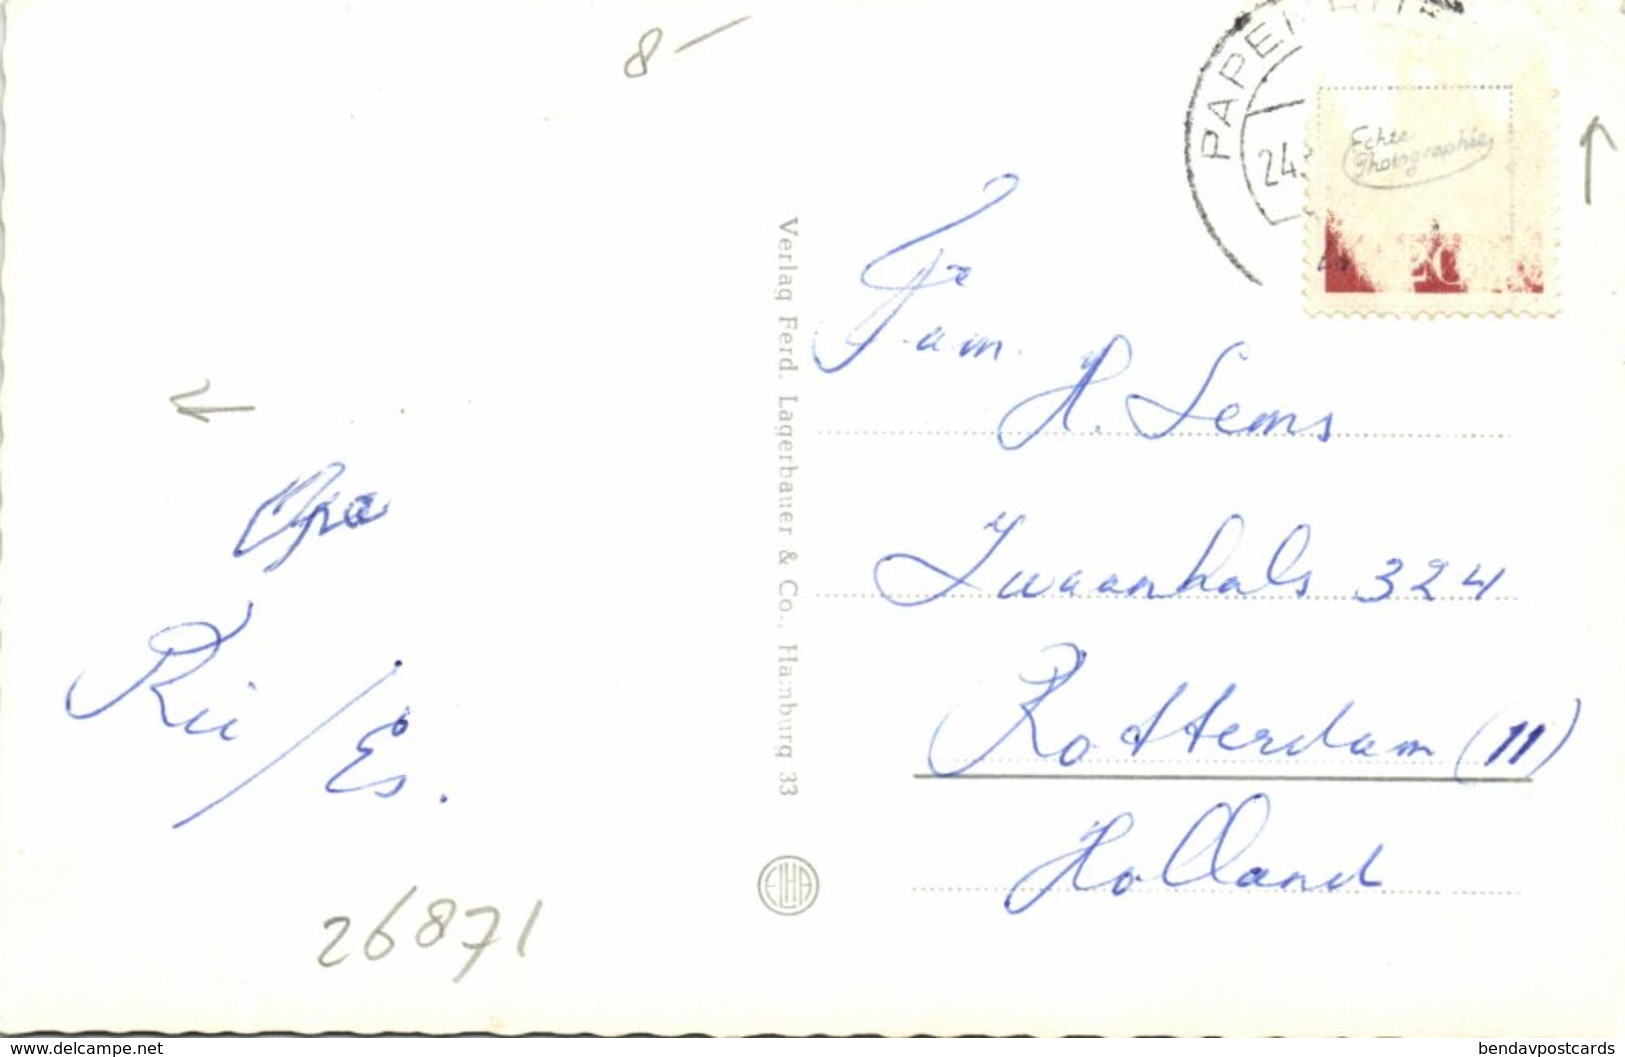 8 –
PAPENBU
24.
Echte
Photographie
20
Fam.
H. Sems
Zwaanhals 324
Rotterdam (11)
Holland
Verlag Ferd. Lagerbauer & Co., Hamburg 33
Opa
Rii / Es.
26871
www.delcampe.net
bendavpostcards